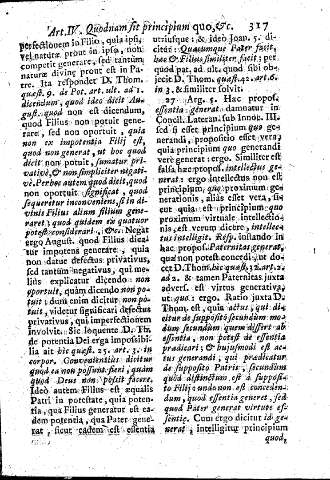 Art. IV. Quodnam sit principium quo, &c. 317
perfectionem in Filio, quia ipsa,
vel natura prout in ipso, non
compete generare, sed tantum
naturæ divinæ prout est in Pa-
tre. Ita respondet D. Thom.
quæst. 9. de Pot. art. ult. ad 1.
dicendum, quod ideo dicit Au-
gust. quod non est dicendum,
quod Filius non potuit gene-
rare, sed non oportuit, quia
non ex impotentia Fil est,
quod non generat, ut hoc quod
dicit non potuit, sumatur priva-
tivè, & non simpliciter negati-
vè. Per hoc autem quod dicit, quod
non oportuit, significat, quod
sequeretur inconveniens, si in di-
vinis Filius alium filium gene-
raret: quod quidem ex quatuor
potest considerari, &c. Negat
ergo August. quod Filius dica-
tur impotens generare, quia
non datur defectus privativus,
sed tantùm negativus, qui me-
liùs explicatur dicendo non
oportuit, quàm dicendo non po-
tuit; dum enim dicitur non po-
tuit, videtur significari defectus
privativus, qui imperfectionem
involvit. Sic loquente D. Th.
de potentia Dei erga impossibi-
lia ait hic quæst. 25. art. 3. in
corpor. Convenientiùs dicitur
quod ea non possunt fieri, quàm
quod Deus non possit facere.
Ideò autem Filius est æqualis
Patri in potestate, quia poten-
tia, qua Filius generatur est ea-
dem potentia, qua Pater gene-
rat, sicut eadem est essentia
utriusque: & ideò Joan. 5. di-
citur: Quæcumque Pater facit,
hæc & Filius similiter facit: per
quod pat. ad ult. quod sibi ob-
jecit D. Thom. quæst. 42. art. 6.
in 3. & similiter solvit.
27. Arg. 5. Hæc propos.
essentia generat: damnatur in
Concil. Lateran. sub Innoc. III.
sed si esset principium quo ge-
nerandi, propositio esset vera:
quia principium quo generandi
verè generat: ergo. Similiter est
falsa hæc propos. intellectus ge-
nerat: ergo intellectus non est
principium quo proximum gen-
erationis, aliàs esset vera, si-
cut quia est principium quo
proximum virtuale intellectio-
nis, est verum dicere, intellec-
tus intelligit. Resp. instando in
hac propos. Paternitas generat,
quam non esse concedendam do-
cet D. Thom. hic quæst. 32. art. 2.
ad 2. & tamen Paternitas juxta
advers. est virtus generativa,
ut quo: ergo. Ratio juxta D.
Thom. est, quia actus, qui di-
citur de supposito secundùm mo-
dum secundùm quem differt ab
essentia, non potest de essentia
prædicari; & hujusmodi est ac-
tus generandi, qui prædicatur
de supposito Patris secundùm
quòd distinctum est à supposi-
to Filii: unde non est conceden-
dum, quod essentia generet, sed
quod Pater generat virtute es-
sentiæ. Cum ergo dicitur in-
generat, intelligitur principium
quod,